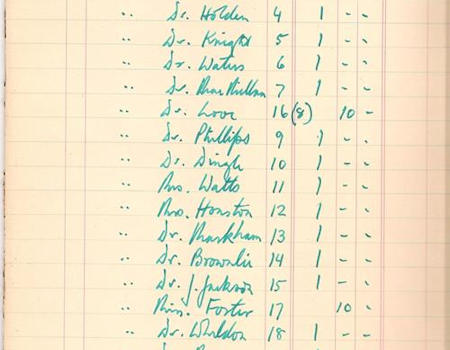 " Dr. Holden 4 1 - -
" Dr. Knight 5 1 - -
" Dr. Waters 6 1 - -
" Dr. 7 1 - -
" Dr. Love 16 (8) 10 -
" Dr. Phillips 9 1 - -
" Dr. Dingle 10 1 - -
" Mrs. Watts 11 1 - -
" Mrs. Houston 12 1 - -
" Dr. Markham 13 1 - -
" Dr. Brownlie 14 1 - -
" Dr. J. Jackson 15 1 - -
" Miss. Foster 17 10 -
" Dr. Wheldon 18 1 - -